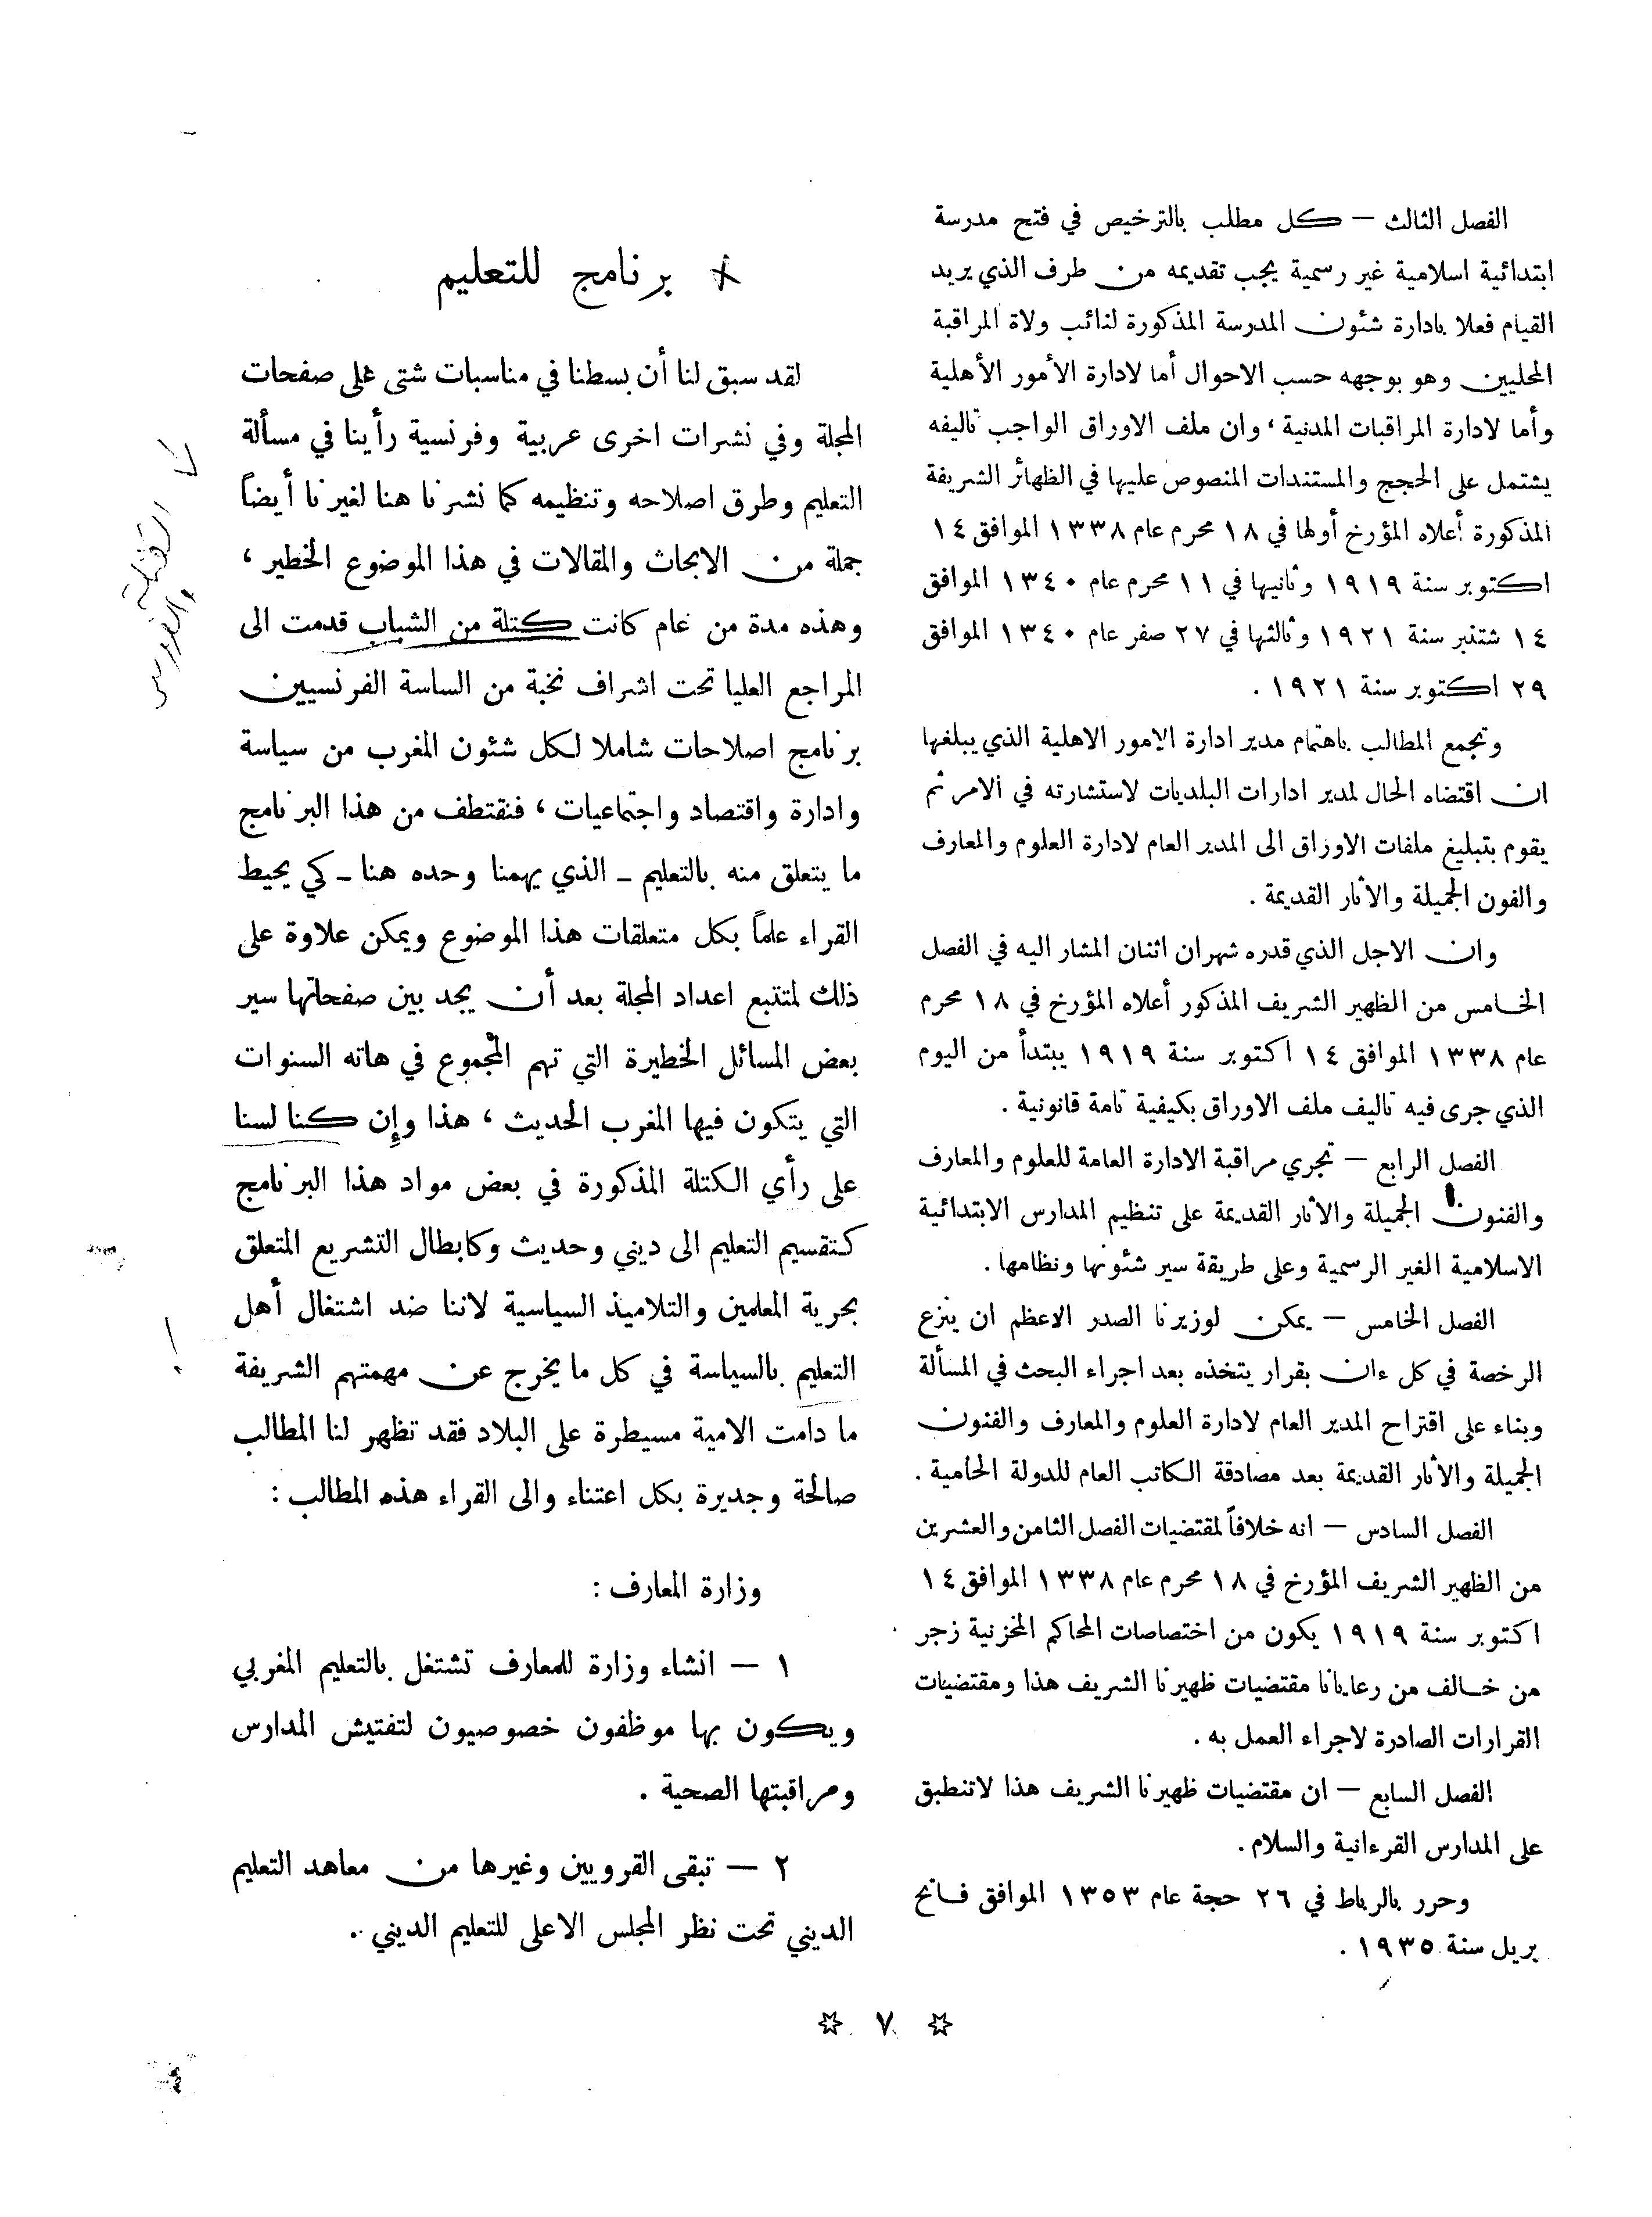 الفصل الثالث — كل مطلب بالترخيص في فتح مدرسة
ابتدائية اسلامية غير رسمية يجب تقديمه من طرف الذي يريد
القيام فعلا بادارة شئون المدرسة المذكورة لنائب ولاة المراقبة
المحليين وهو بوجهه حسب الاحوال أما لادارة الأمور الأهلية
وأما لادارة المراقبات المدنية ، وان ملف الاوراق الواجب تاليفه
يشتمل على الحجج والمستندات المنصوص عليها في الظهائر الشريفة
المذكورة أعلاه المؤرخ أولها في ١٨ محرم عام ١٣٣٨ الموافق ١٤
اكتوبر سنة ١٩١٩ وثانيها في ١١ محرم عام ١٣٤٠ الموافق
١٤ شتنبر سنة ١٩٢١ وثالثها في ٢٧ صفر عام ١٣٤٠ الموافق
٢٩ اكتوبر سنة ١٩٢١ .
وتجمع المطالب باهتمام مدير ادارة الامور الاهلية الذي يبلغها
ان اقتضاه الحال لمدير ادارات البلديات لاستشارته في الامر ثم
يقوم بتبليغ ملفات الاوراق الى المدير العام لادارة العلوم والمعارف
والفون الجميلة والأثار القديمة .
وان الاجل الذي قدره شهران اثنان المشار اليه في الفصل
الخامس من الظهير الشريف المذكور أعلاه المؤرخ في ١٨ محرم
عام ١٣٣٨ الموافق ١٤ اكتوبر سنة ١٩١٩ يبتدأ من اليوم
الذي جرى فيه تاليف ملف الاوراق بكيفية تامة قانونية .
الفصل الرابع — تجري مراقبة الادارة العامة للعلوم والمعارف
والفنون الجميلة والأثار القديمة على تنظيم المدارس الابتدائية
الاسلامية الغير الرسمية وعلى طريقة سير شئونها ونظامها .
الفصل الخامس — يمكن لوزيرنا الصدر الاعظم ان ينزع
الرخصة في كل ءان بقرار يتخذه بعد اجراء البحث في المسألة
وبناء على اقتراح المدير العام لادارة العلوم والمعارف والفنون
الجميلة والأثار القديمة بعد مصادقة الكاتب العام للدولة الحامية .
الفصل السادس — انه خلافاً لمقتضيات الفصل الثامن والعشرين
من الظهير الشريف المؤرخ في ١٨ محرم عام ١٣٣٨ الموافق ١٤
اكتوبر سنة ١٩١٩ يكون من اختصاصات المحاكم المخزنية زجر
من خالف من رعايانا مقتضيات ظهيرنا الشريف هذا ومقتضيات
القرارات الصادرة لاجراء العمل به .
الفصل السابع — ان مقتضيات ظهيرنا الشريف هذا لاتنطبق
على المدارس القرءانية والسلام .
وحرر بالرباط في ٢٦ حجة عام ١٣٥٣ الموافق فاتح
بريل سنة ١٩٣٥ .
برنامج للتعليم
لقد سبق لنا أن بسطنا في مناسبات شتى على صفحات
المجلة وفي نشرات اخرى عربية وفرنسية رأينا في مسألة
التعليم وطرق اصلاحه وتنظيمه كما نشرنا هنا لغيرنا أيضاً
جملة من الابحاث والمقالات في هذا الموضوع الخطير ،
وهذه مدة من عام كانت كتلة من الشباب قدمت الى
المراجع العليا تحت اشراف نخبة من الساسة الفرنسيين
برنامج اصلاحات شاملا لكل شئون المغرب من سياسة
وادارة واقتصاد واجتماعيات ، فنقتطف من هذا البرنامج
ما يتعلق منه بالتعليم ـ الذي يهمنا وحده هنا ـ كي يحيط
القراء علماً بكل متعلقات هذا الموضوع ويمكن علاوة على
ذلك لمتتبع اعداد المجلة بعد أن يجد بين صفحاتها سير
بعض المسائل الخطيرة التي تهم المجموع في هاته السنوات
التي يتكون فيها المغرب الحديث ، هذا وإن كنا لسنا
على رأي الكتلة المذكورة في بعض مواد هذا البرنامج
كتقسيم التعليم الى ديني وحديث وكابطال التشريع المتعلق
بحرية المعلمين والتلاميذ السياسية لاننا ضد اشتغال أهل
التعليم بالسياسة في كل ما يخرج عن مهمتهم الشريفة
ما دامت الامية مسيطرة على البلاد فقد تظهر لنا المطالب
صالحة وجديرة بكل اعتناء والى القراء هذه المطالب :
وزارة المعارف :
١ — انشاء وزارة للمعارف تشتغل بالتعليم المغربي
ويكون بها موظفون خصوصيون لتفتيش المدارس
ومراقبتها الصحية .
٢ — تبقى القرويين وغيرها من معاهد التعليم
الديني تحت نظر المجلس الاعلى للتعليم الديني .
٧